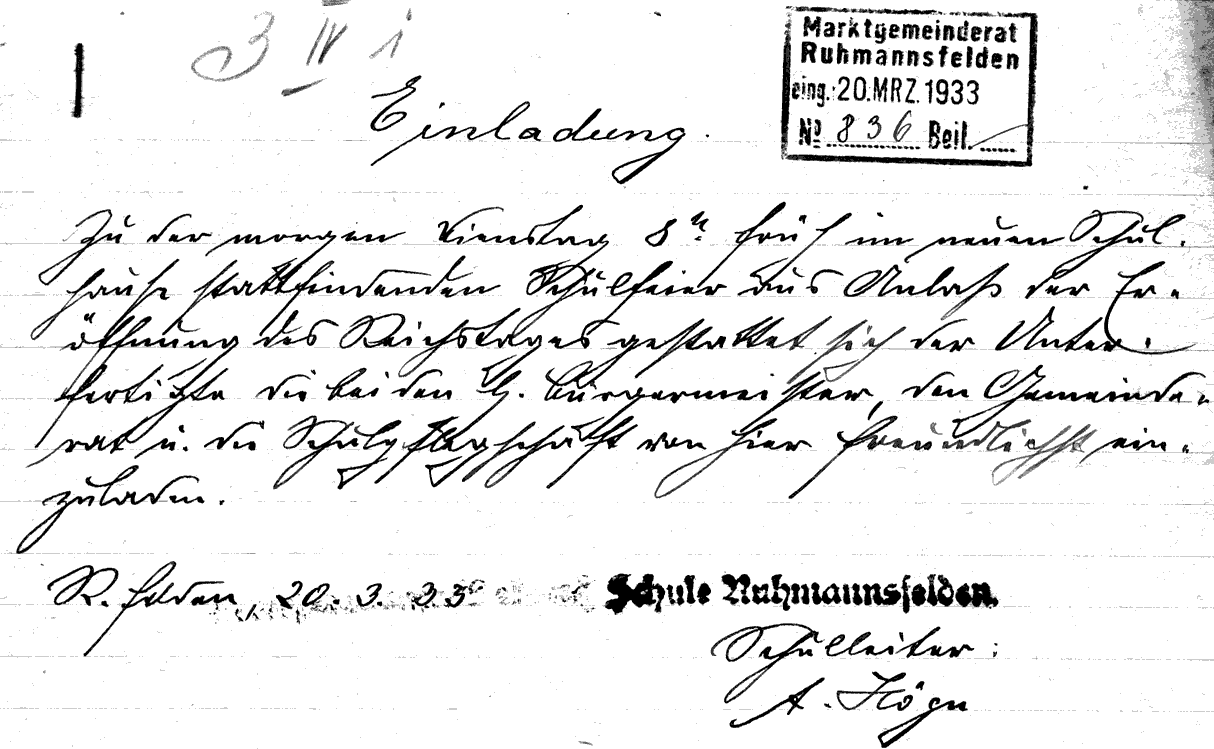 3 IV i
Marktgemeinderat
Ruhmannsfelden
eing.: 20. MRZ. 1933
No 836 Beil.
Einladung.
Zu der morgen Dienstag 8 h. früh im neuen Schul-
hause stattfindenden Schulfeier aus Anlaß der Er=
öffnung des Reichstages gestattet sich der Unter-
fertigte die beiden H. Bürgermeister, den Gemeinde=
rat u. die Schulpflegschaft von hier freundlichst ein=
zuladen.
R. felden, 20. 3. 33
Schule Ruhmannsfelden.
Schulleiter:
A. Högn